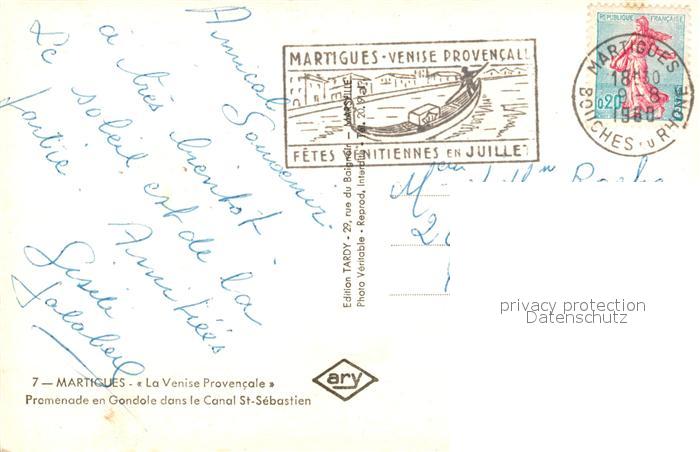 Amical Souvenir
à très bientôt
Le soleil est de la
partie. Amitiés
Gisèle
MARTIGUES - VENISE PROVENÇALE
FÊTES VÉNITIENNES EN JUILLET
REPUBLIQUE FRANÇAISE
0,20
MARTIGUES
18H30
9 - 8
1960
BOUCHES DU RHONE
Edition TARDY - 29, rue du Baignoir - MARSEILLE
Photo Véritable - Reprod. Interdite
privacy protection
Datenschutz
7 — MARTIGUES - « La Venise Provençale »
Promenade en Gondole dans le Canal St-Sébastien
ary